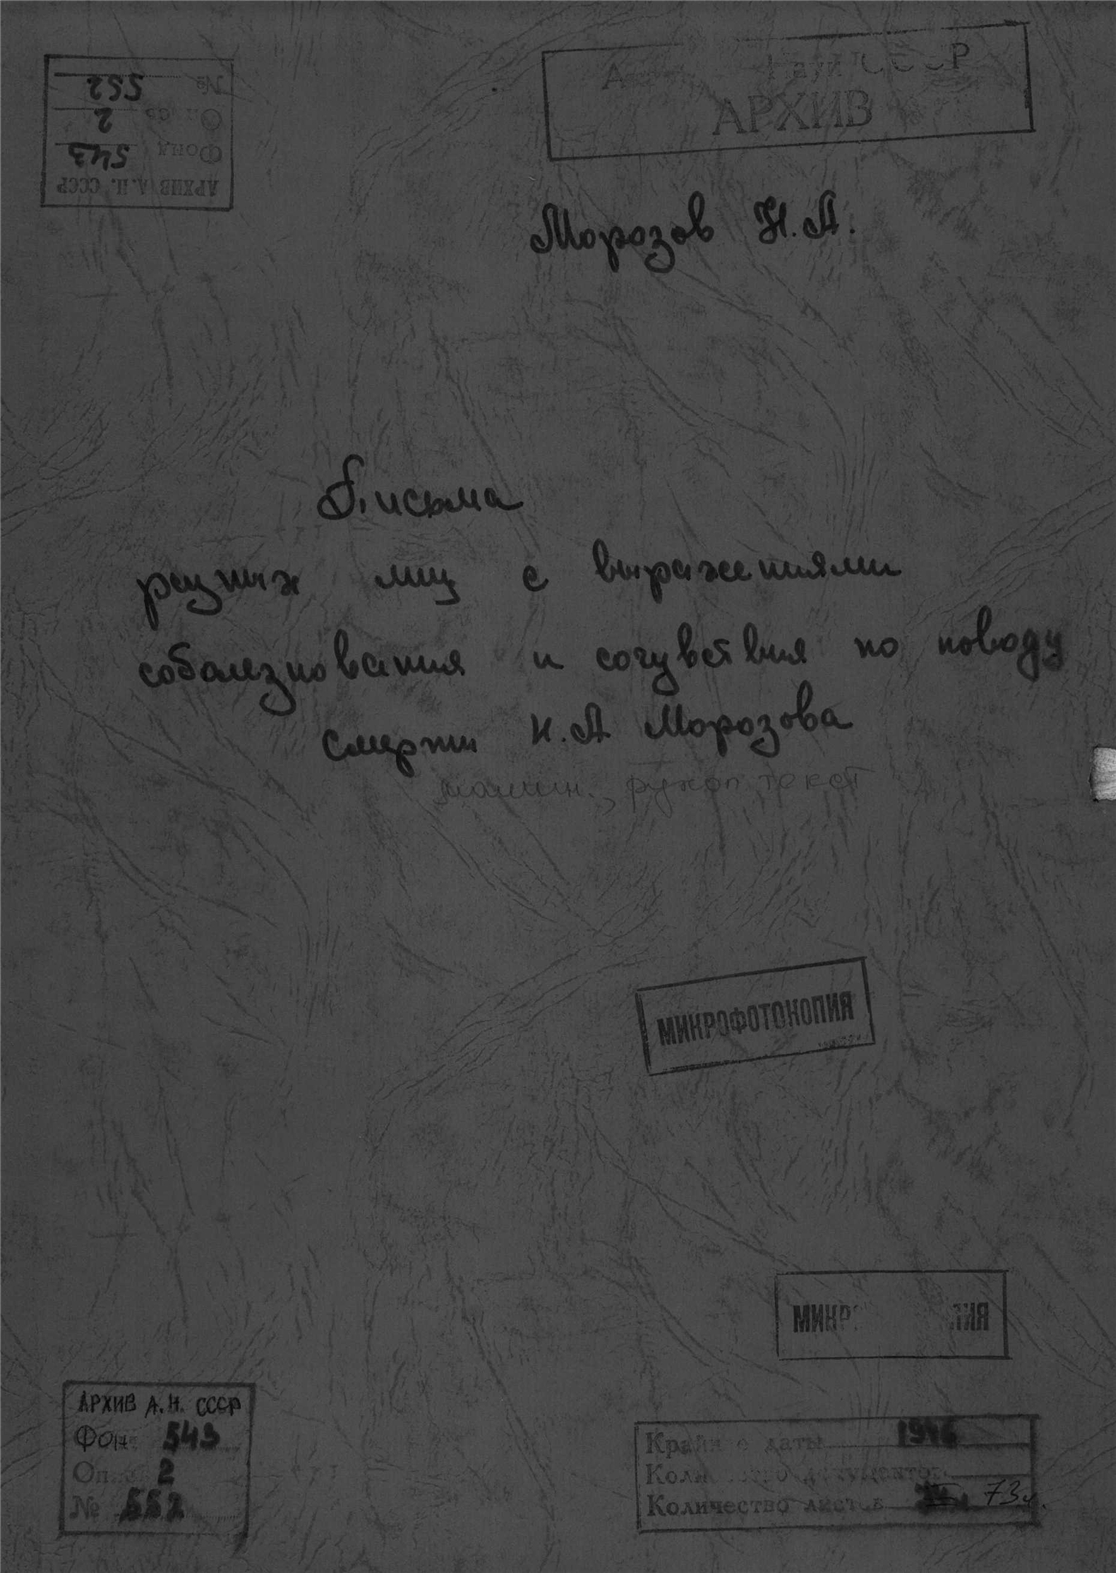 № 552
Опись 2
Фонд 543
АРХИВ А.Н. СССР
СССР
АРХИВ
Морозов Н.А.
Письма
разных лиц с выражениями
соболезнования и сочувствия по поводу
смерти Н.А Морозова
машин., рукоп. текст
МИКРОФОТОКОПИЯ
МИКР ПИЯ
АРХИВ А.Н. СССР
Фон 543
Оп. 2
№ 552
Крайн е даты 1946
Количество документов
Количество листов 73л.